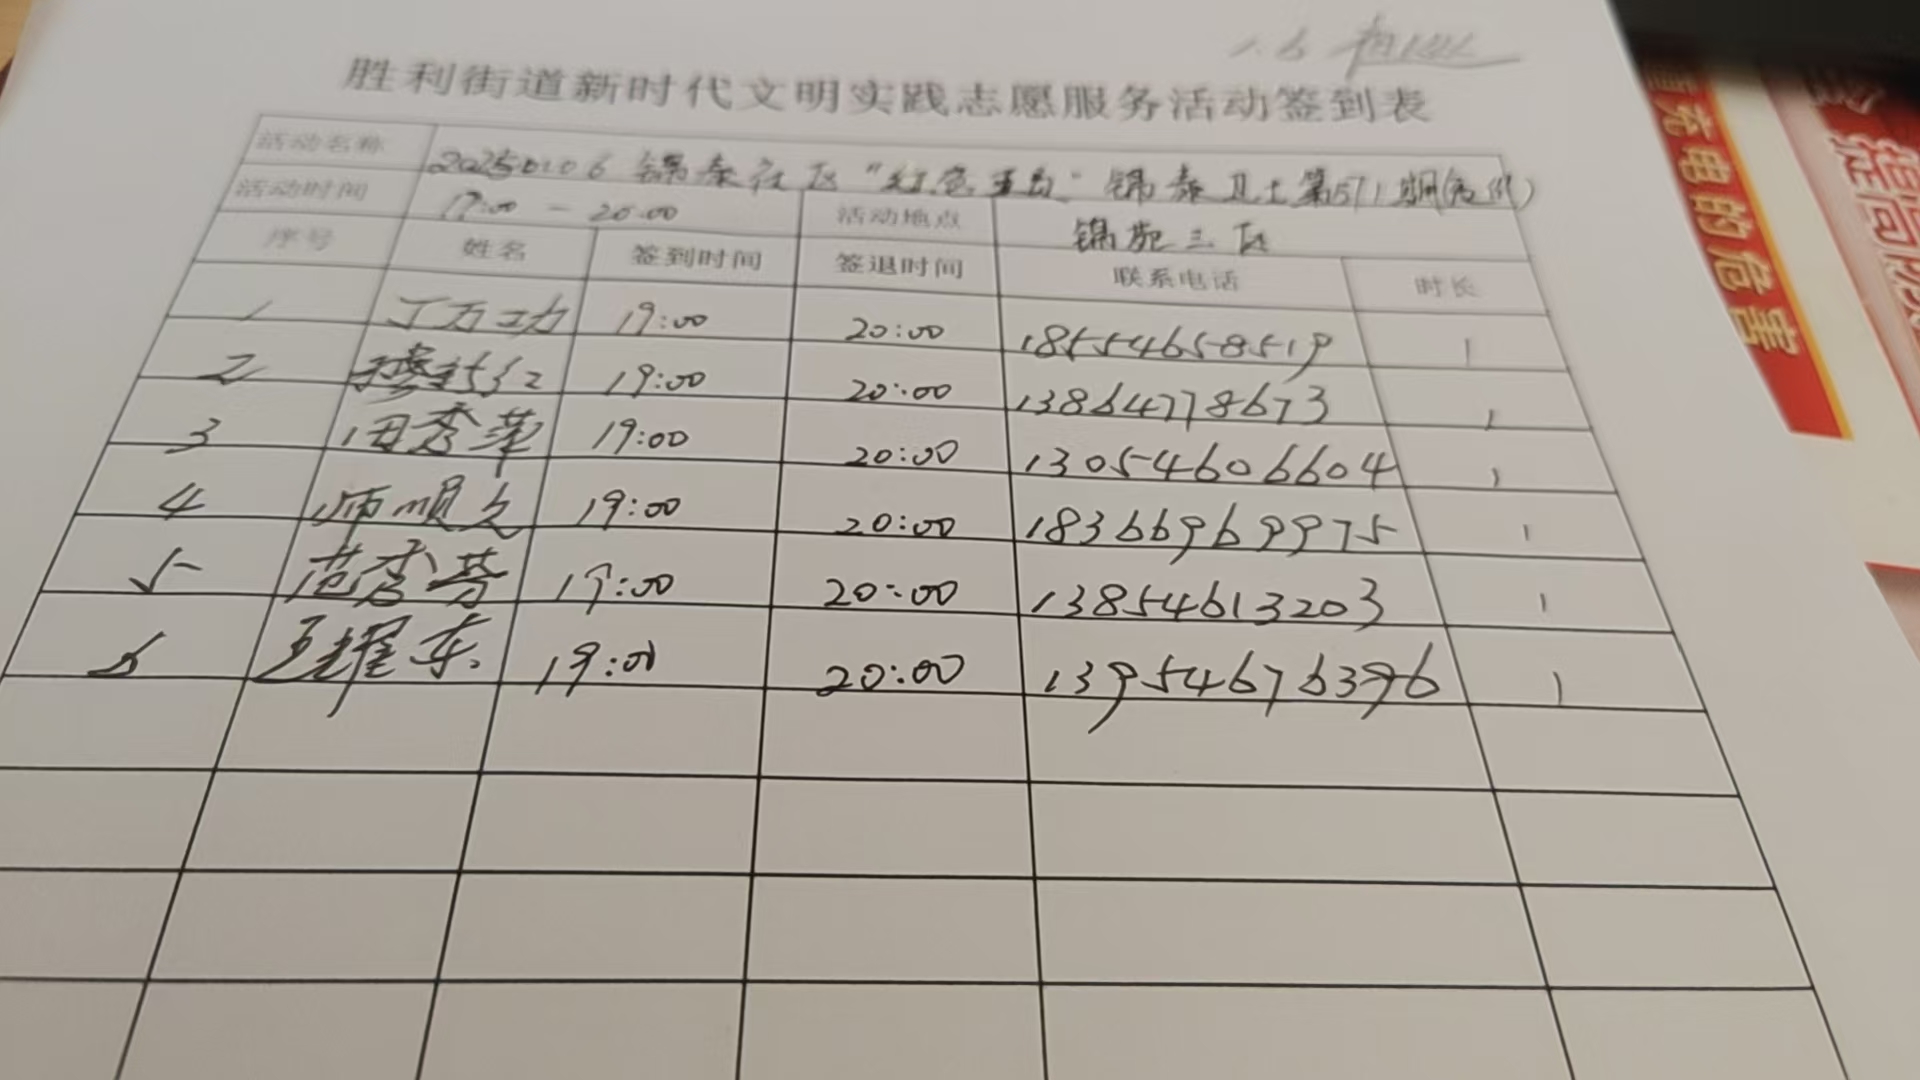 1.6
胜利街道新时代文明实践志愿服务活动签到表
活动名称 20250106 锦泰社区“红色 ” 锦泰卫士第571期(夜
活动时间 19:00 - 20:00 活动地点 锦苑三区
序号 姓名 签到时间 签退时间 联系电话 时长
1 丁万功 19:00 20:00 18554658519 1
2 穆 红 19:00 20:00 13864778673 1
3 田秀萍 19:00 20:00 13054606604 1
4 师顺久 19:00 20:00 18366969975 1
5 范秀芬 19:00 20:00 13854613203 1
6 王耀东 19:00 20:00 13954676396 1
充电的危害
提高